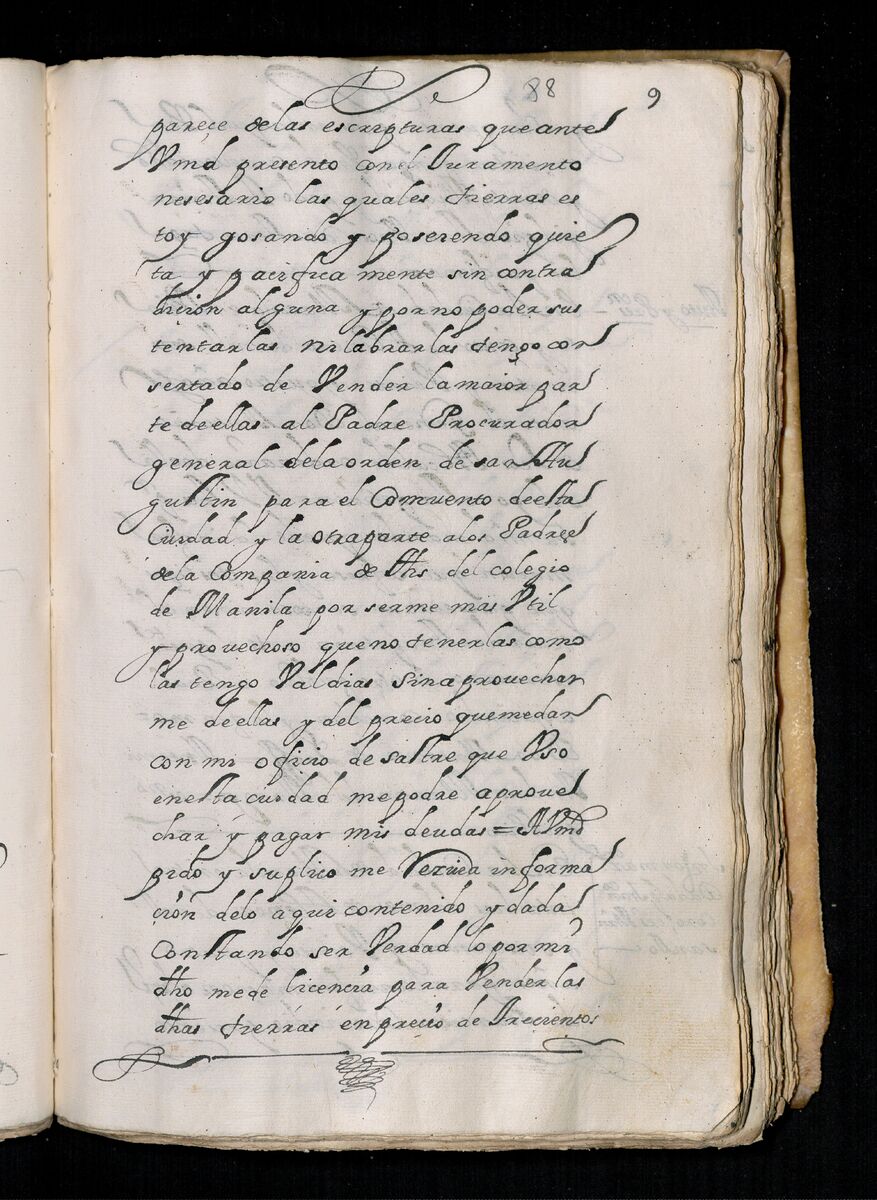 88 9
pareçe delas escripturas que ante
Vmd presento con el Juramento
nesesario las quales tierras es
toy gosando y poseiendo quie
ta y pacifica mente sin contra
dicion alguna y por no poder sus
tentarlas ni labrarlas tengo con
sertado de Vender la maior par
te de ellas al Padre Procurador
general dela orden de san Au
gustin para el Comvento de esta
Ciudad y la otra parte a los Padres
dela Compania de Jhs del colegio
de Manila por serme mas Vtil
y provechoso que no tenerlas como
las tengo Valdias sin aprovechar
me de ellas y del precio que me dar
con mi oficio de sastre que Vso
en esta ciudad me podre aprove
char y pagar mis deudas = A Vmd
pido y suplico me Reciva informa
ción delo aqui contenido y dada
Constando ser Verdad lo por mi
dho me de licencia para Vender las
dhas tierras en precio de Trecientos